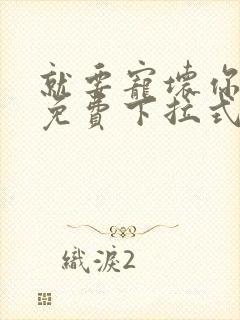 就要寵壞你
免費下拉式
織淚2